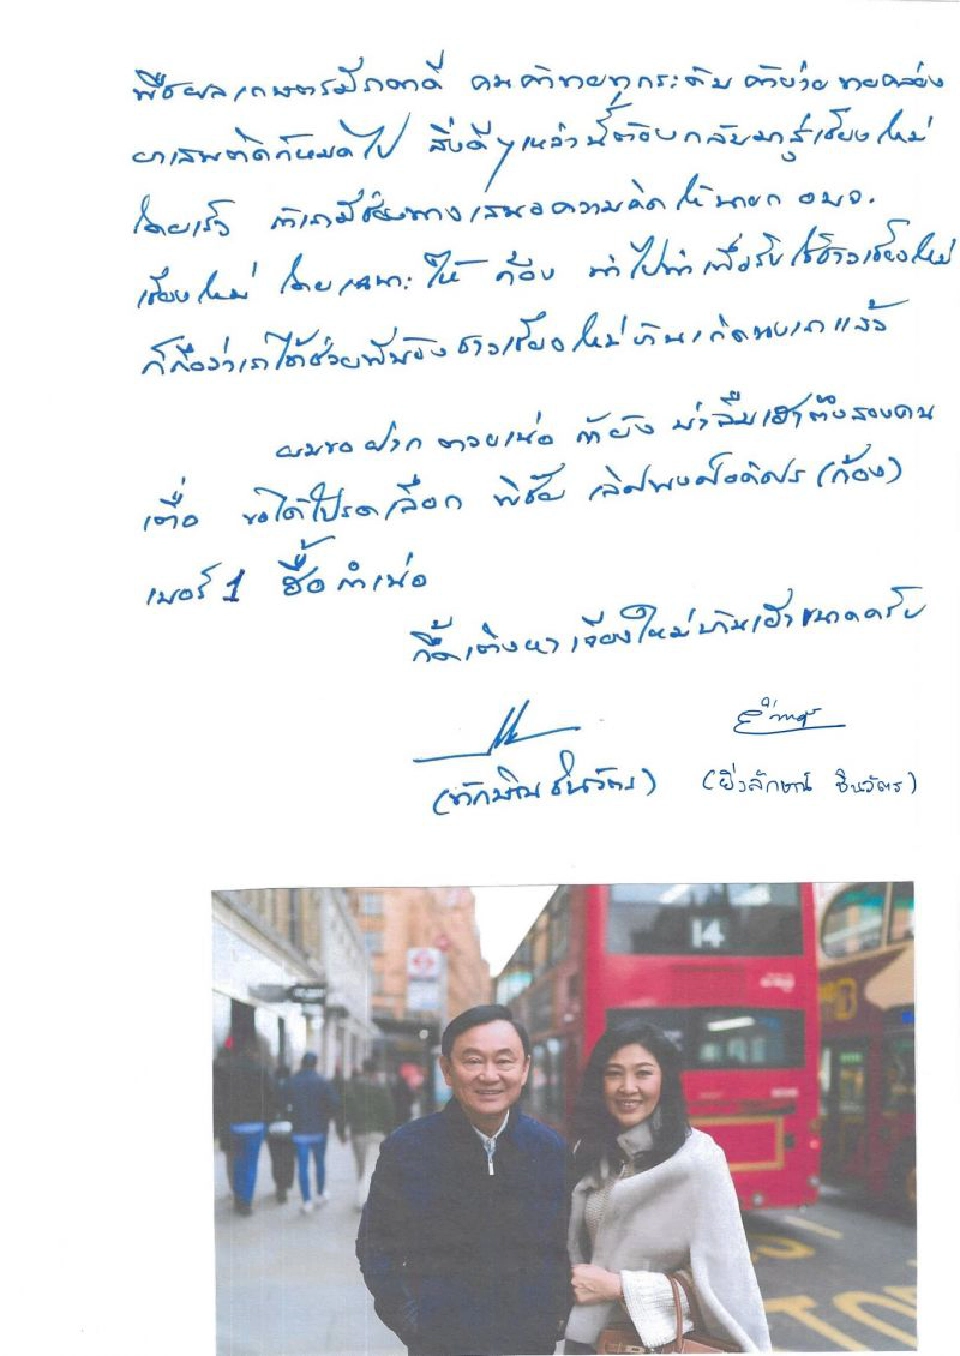 พืชผลเกษตรมีราคาดี คนค้าขายทุกระดับ ค้าง่าย ขายคล่อง
ยาเสพติดก็หมดไป สิ่งดีๆเหล่านี้ต้องกลับมาสู่เชียงใหม่
โดยเร็ว ถ้าเรามีช่องทางเสนอความคิดให้นายก อบจ.
เชียงใหม่ โดยเฉพาะให้ ก้อง นำไปทำเพื่อรับใช้ชาวเชียงใหม่
ก็ถือว่าเราได้ช่วยพี่น้องชาวเชียงใหม่บ้านเกิดของเราแล้ว
ผมขอฝากตวยเน่อ ถ้ายัง บ่าลืมเฮาตึงสองคน
เตื่อ ขอได้โปรดเลือก พิชัย เลิศพงศ์อดิศร (ก้อง)
เบอร์ 1 ฮื้อกำเน่อ
กึ๊ดเติงหาเจียงใหม่บ้านเฮาขนาดครับ
(ทักษิณ ชินวัตร) (ยิ่งลักษณ์ ชินวัตร)
14